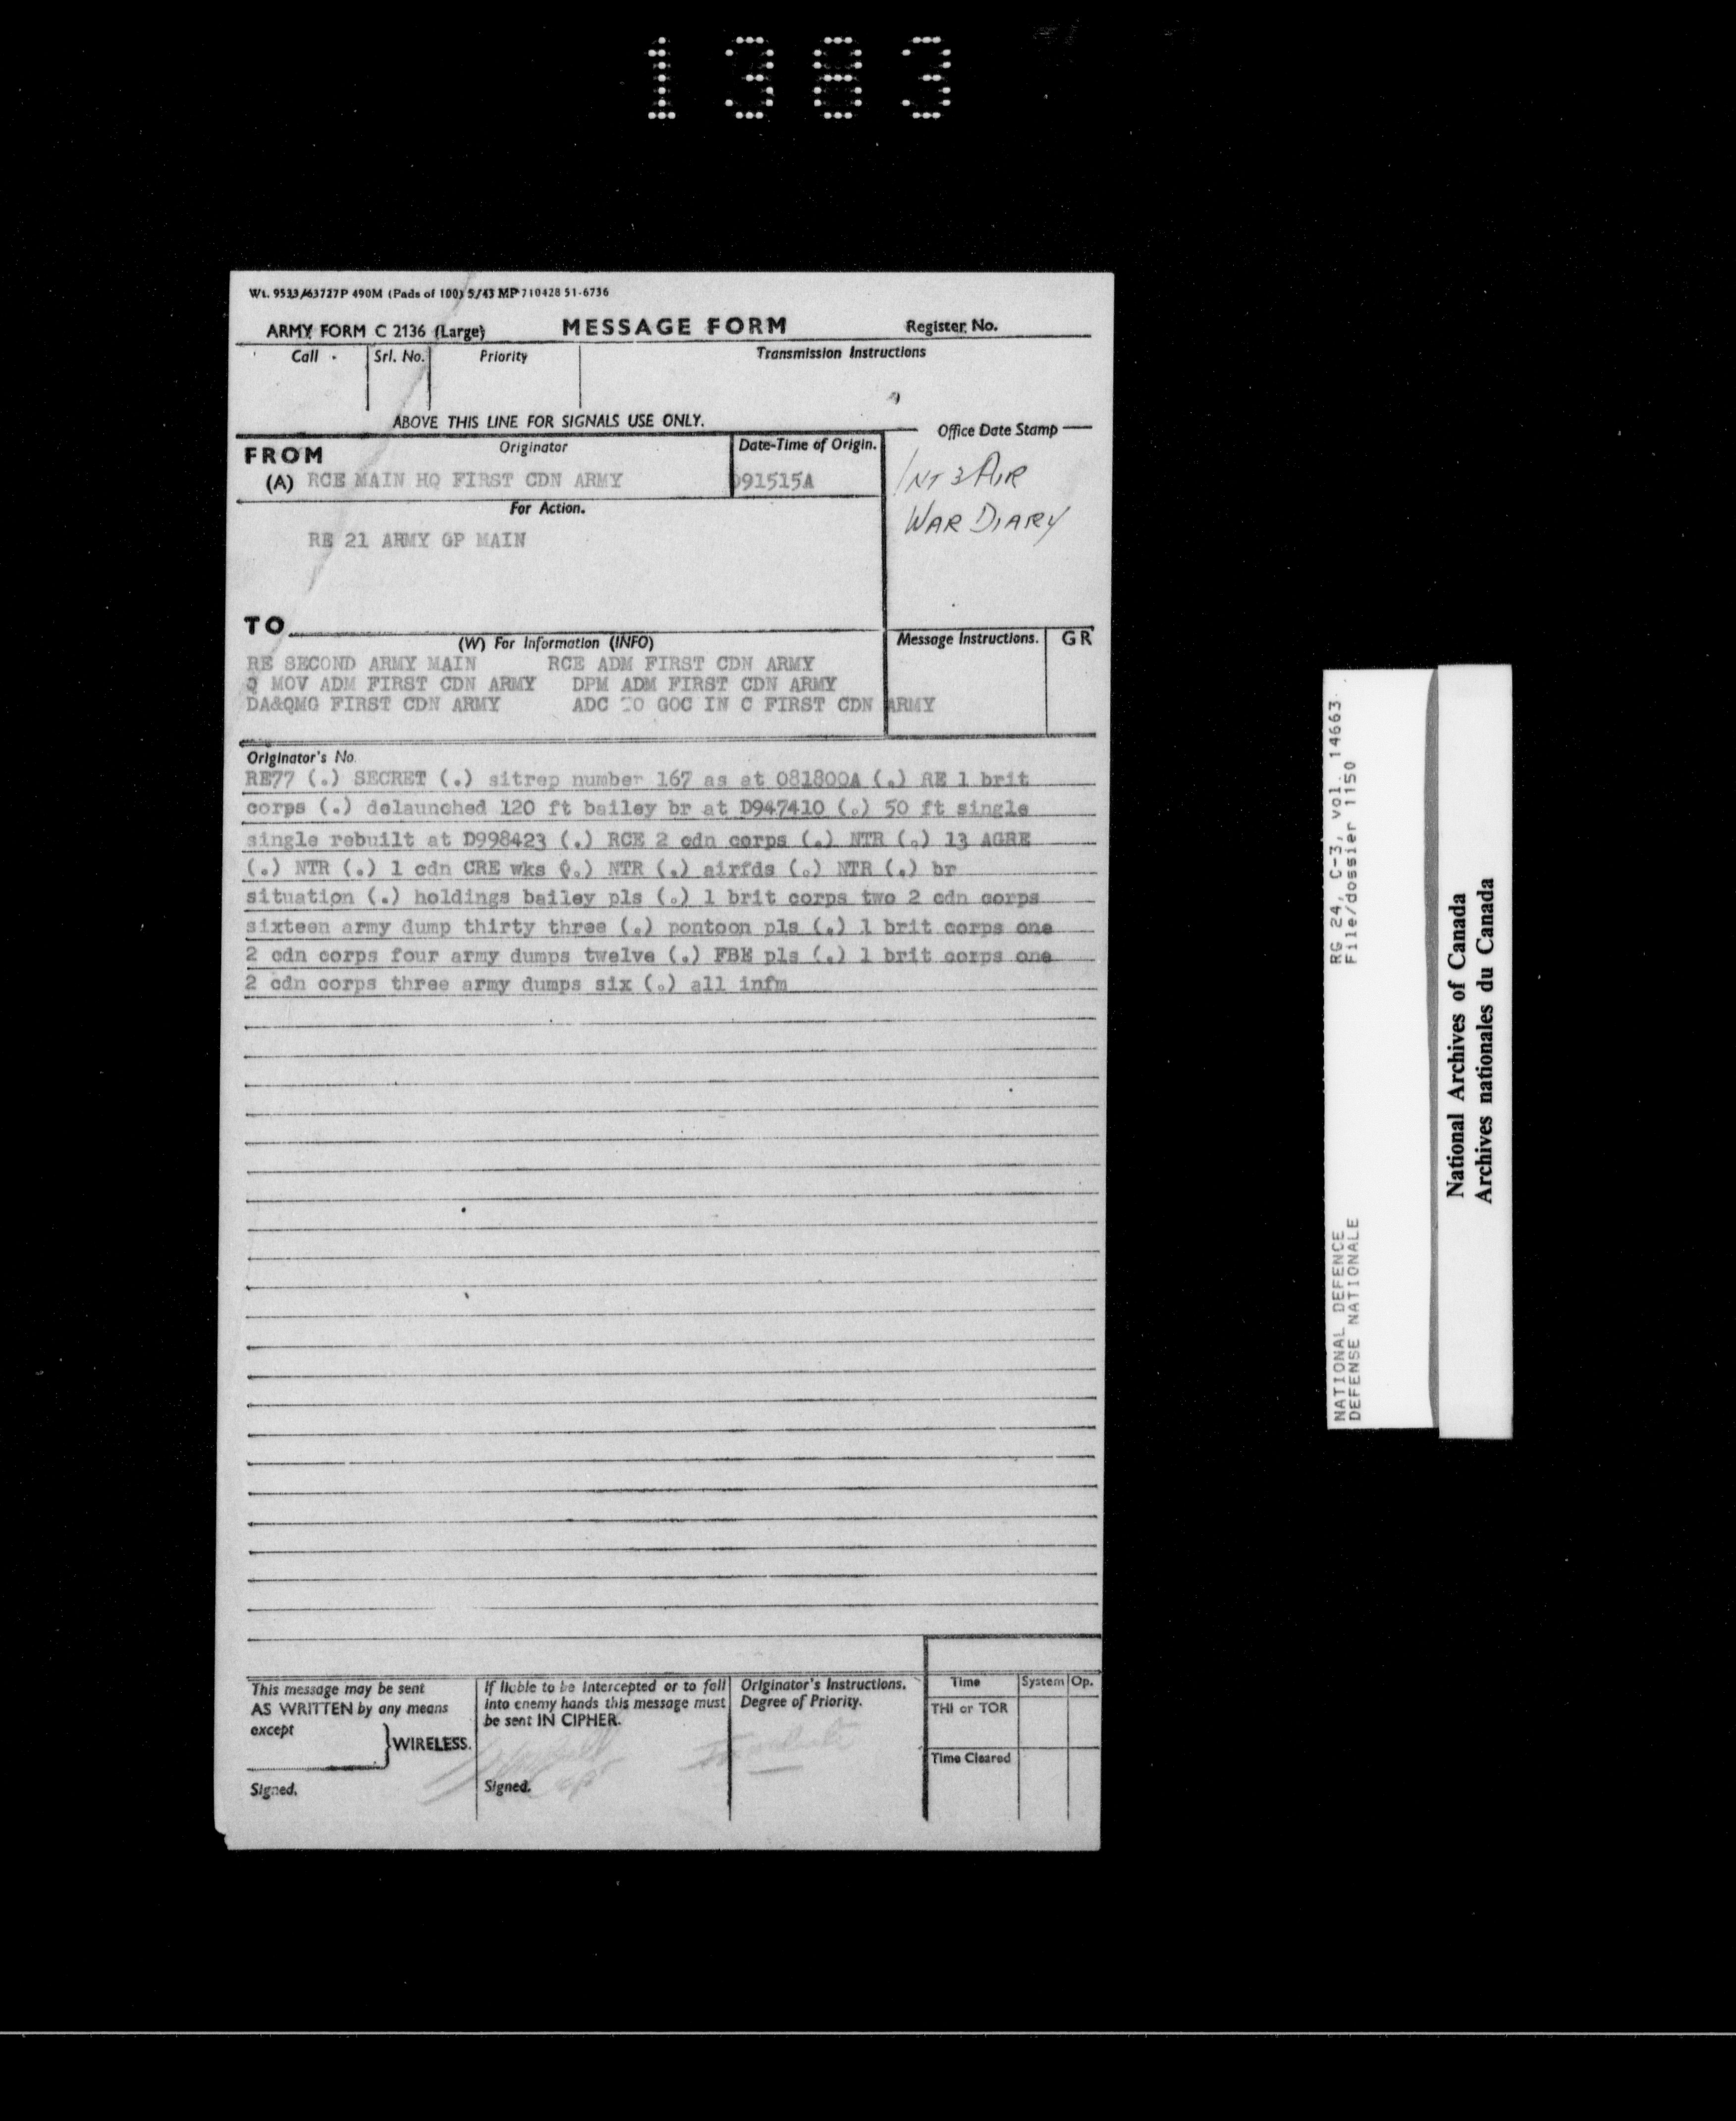 1383
Wt. 9533/63727P 490M (Pads of 100) 5/43 MP 710428 51-6736
ARMY FORM C 2136 (Large) MESSAGE FORM Register No.
Call Srl. No. Priority Transmission Instructions
ABOVE THIS LINE FOR SIGNALS USE ONLY.
Office Date Stamp
FROM Originator Date-Time of Origin.
(A) RCE MAIN HQ FIRST CDN ARMY 091515A
INT 3 AIR
WAR DIARY
For Action.
RE 21 ARMY GP MAIN
TO
(W) For Information (INFO) Message Instructions. GR
RE SECOND ARMY MAIN RCE ADM FIRST CDN ARMY
Q MOV ADM FIRST CDN ARMY DPM ADM FIRST CDN ARMY
DA&QMG FIRST CDN ARMY ADC TO GOC IN C FIRST CDN ARMY
Originator's No.
RE77 (.) SECRET (.) sitrep number 167 as at 081800A (.) RE 1 brit
corps (.) delaunched 120 ft bailey br at D947410 (.) 50 ft single
single rebuilt at D998423 (.) RCE 2 cdn corps (.) NTR (.) 13 AGRE
(.) NTR (.) 1 cdn CRE wks (.) NTR (.) airfds (.) NTR (.) br
situation (.) holdings bailey pls (.) 1 brit corps two 2 cdn corps
sixteen army dump thirty three (.) pontoon pls (.) 1 brit corps one
2 cdn corps four army dumps twelve (.) FBE pls (.) 1 brit corps one
2 cdn corps three army dumps six (.) all infm
This message may be sent
AS WRITTEN by any means
except
WIRELESS.
Signed.
If liable to be intercepted or to fall
into enemy hands this message must
be sent IN CIPHER.
Signed.
Originator's Instructions.
Degree of Priority.
Time System Op.
THI or TOR
Time Cleared
NATIONAL DEFENCE RG 24, C-3, vol. 14663
DEFENSE NATIONALE File/dossier 1150
National Archives of Canada
Archives nationales du Canada